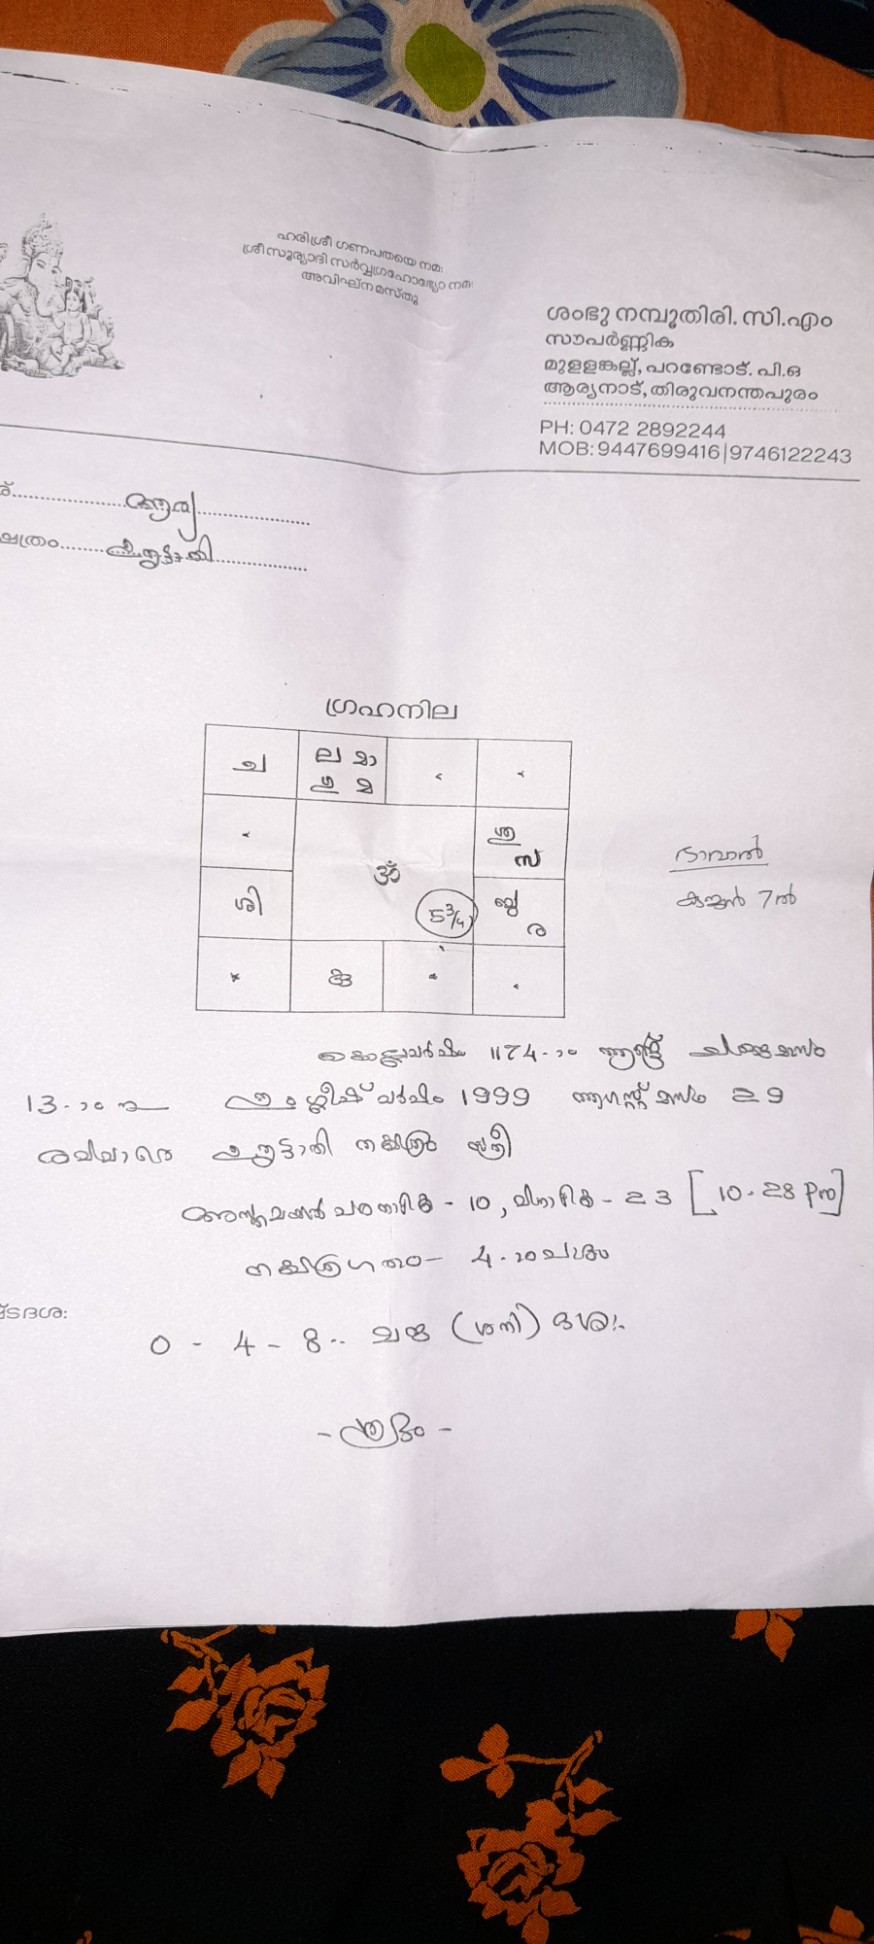 ഹരിശ്രീ ഗണപതയെ നമ:
ശ്രീസൂര്യാദി സർവ്വഗ്രഹോഭ്യോ നമ:
അവിഘ്നമസ്തു
ശംഭു നമ്പൂതിരി. സി.എം
സൗപർണ്ണിക
മുളളങ്കല്ല്, പറണ്ടോട്. പി.ഒ
ആര്യനാട്, തിരുവനന്തപുരം
PH: 0472 2892244
MOB: 9447699416|9746122243
ആര്യ
ഉതൃട്ടാതി
ഗ്രഹനില
ച ല മാ
ഗു മ
ശു
സ
ഓം
ശി 5 3/4 ബു
ര
കു
കുജൻ 7ൽ
കൊല്ലവർഷം 1174-ാം ആണ്ട് ചിങ്ങമാസം
13-ാം നു ഇംഗ്ലീഷ് വർഷം 1999 ആഗസ്റ്റ് മാസം 29
ഉതൃട്ടാതി നക്ഷത്രം സ്ത്രീ
അസ്തമയാൽ പരനാഴിക - 10, വിനാഴിക - 23 [10-28 pm]
4-ാം പാദം
0 - 4 - 8 (ശനി) ദശ:
- ശുഭം -